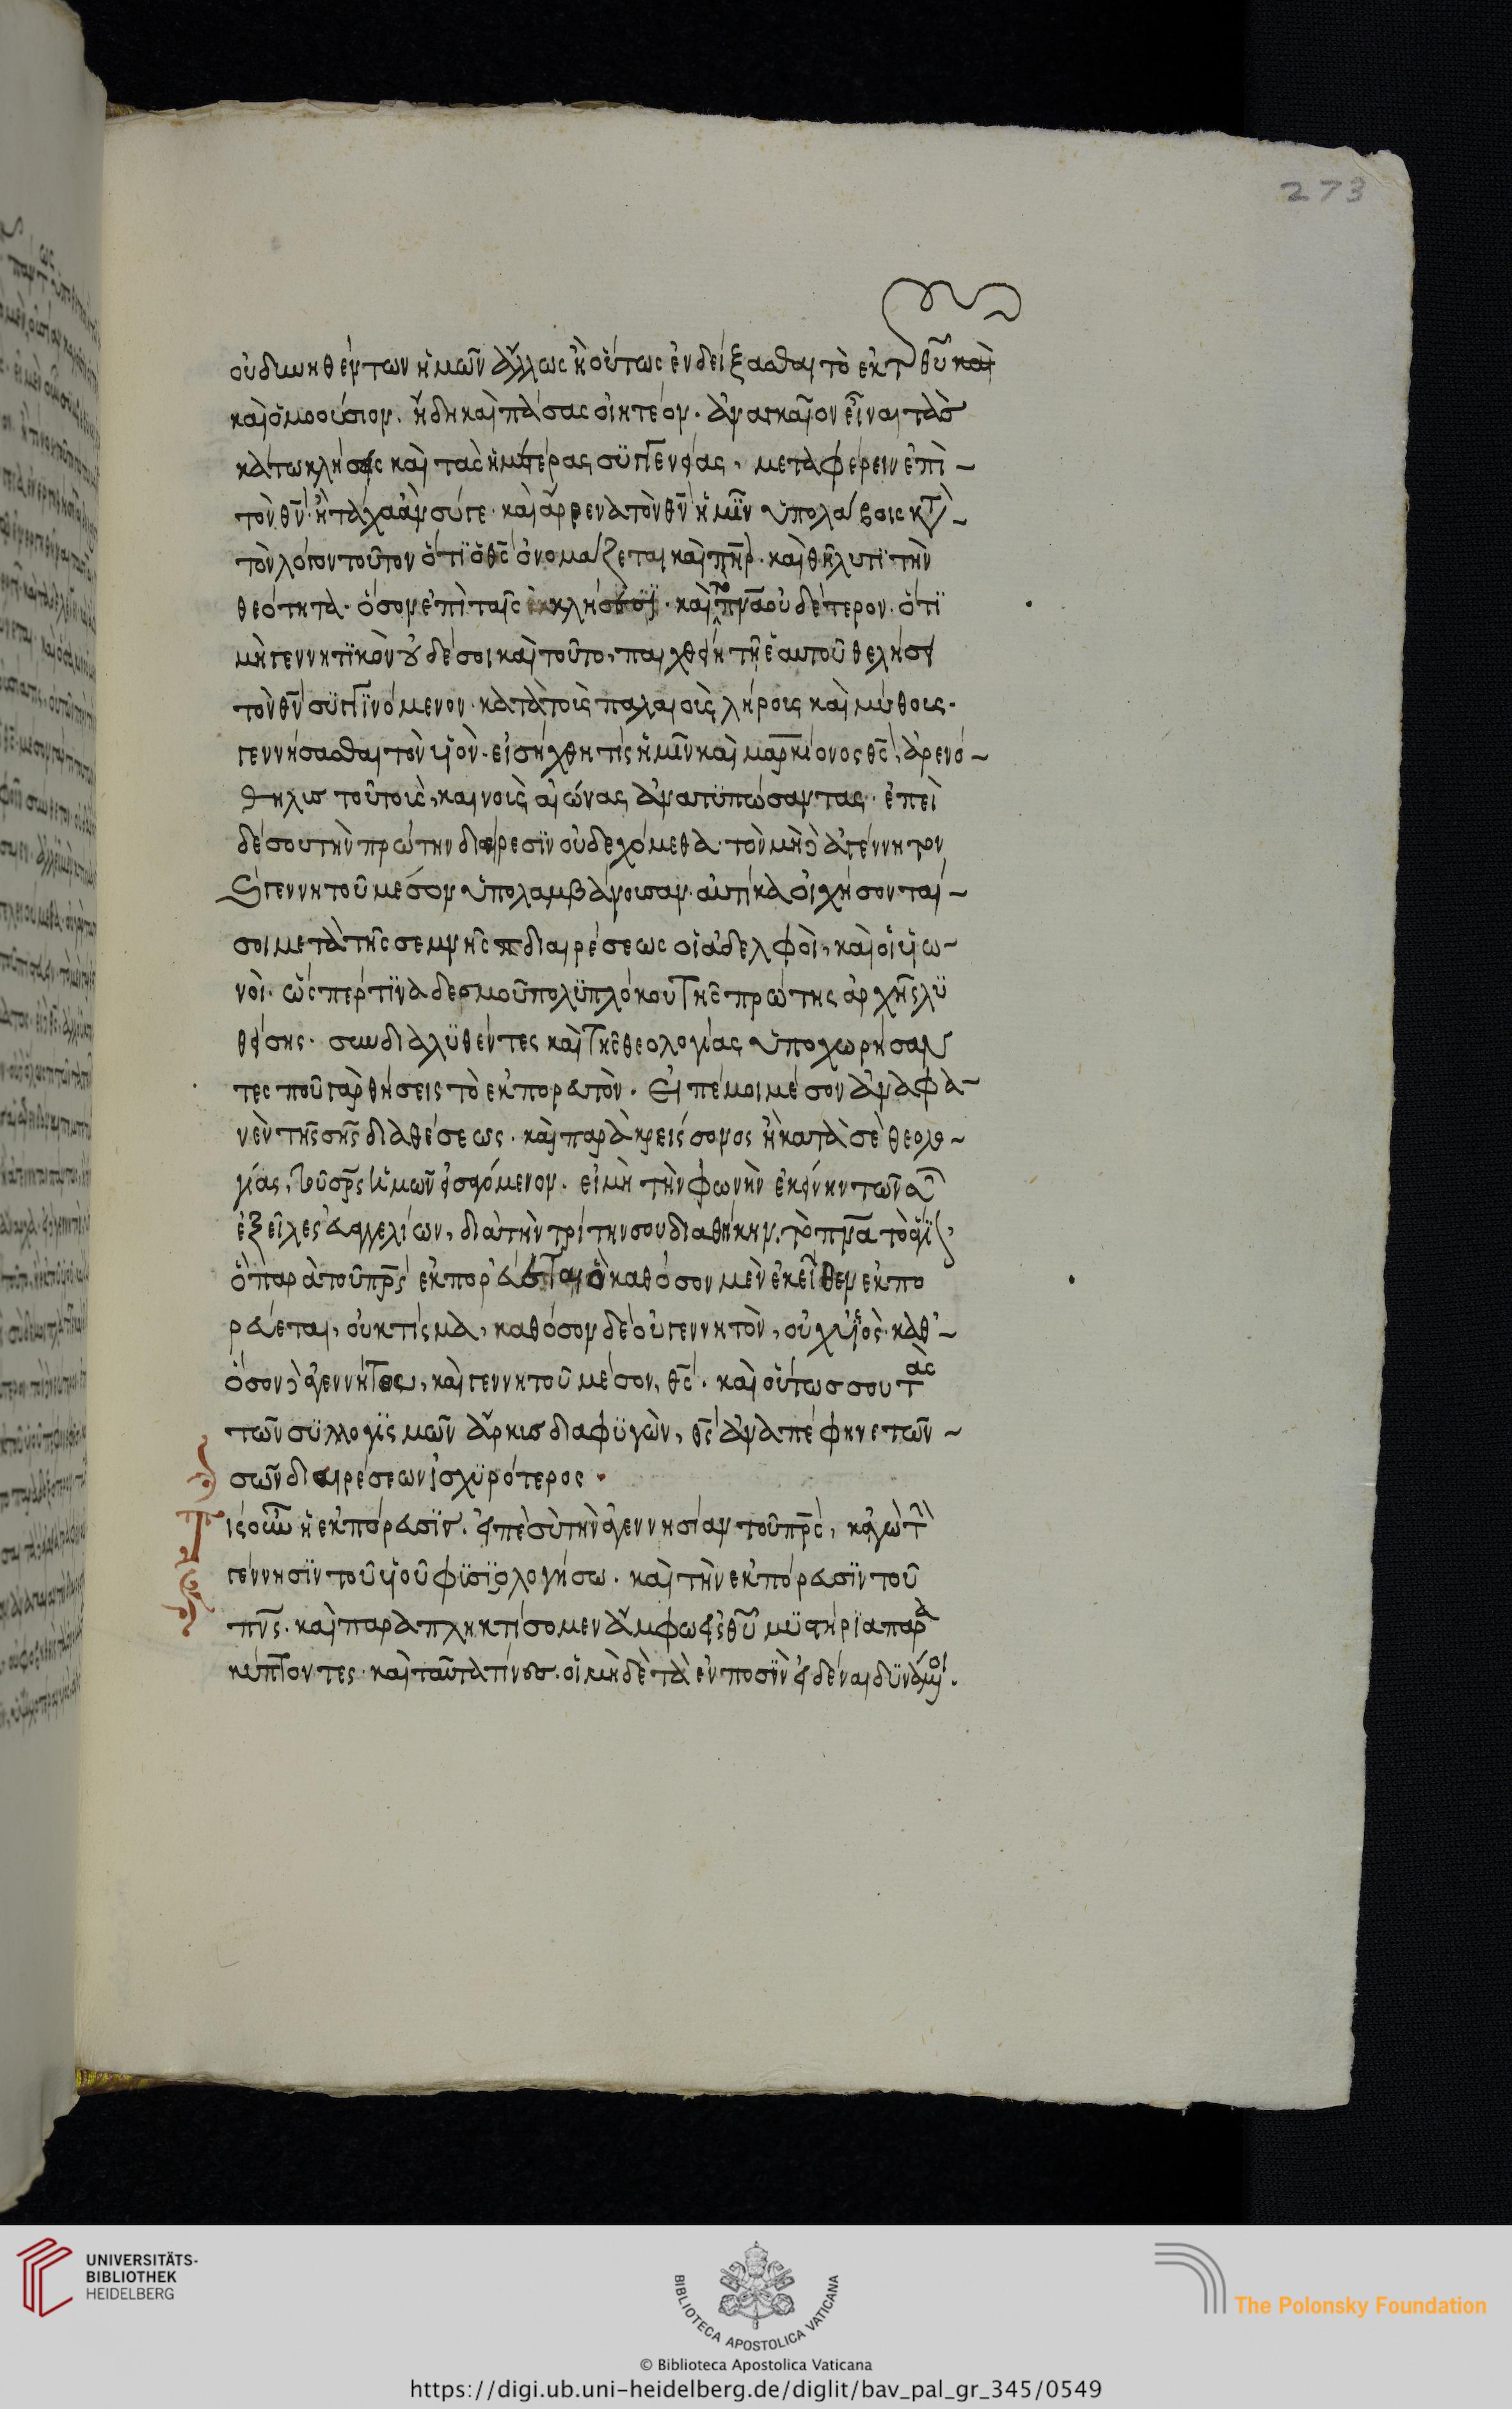 273
οὐ δυνηθέντων ἡμῶν ἄλλως ἢ οὕτως ἐνδείξασθαι τὸ ἐκ τ θῦ καὶ
καὶ ὁμοούσιον. ἤδη καὶ πάσας οἰητέον. ἀναγκαῖον εἶναι τὰσ
κάτω κλήσεις καὶ τὰς ἡμετέρας συγγενείας, μεταφέρειν ἐπὶ –
τὸν θν̄. ἢ τάχα ἂν σύγε καὶ ἄρρενα τὸν θν̄ ἡμῖν ὑπολάβοις κτ –
τὸν λόγον τοῦτον ὅτι ὁ θς̄ ὀνομάζεται καὶ πηρ̄. καὶ θῆλυ τι τὴν
θεότητα. ὅσον ἐπὶ ταῖς κλήσεσι. καὶ τὸ πνᾱ οὐδέτερον. ὅτι
μὴ γεννητικὸν εἰ δέ σοι καὶ τοῦτο, παιχθείη τῇ ἑαυτοῦ θελήσει
τὸν θν̄ συγγινόμενον κατὰ τοῖς παλαιοῖς λήροις καὶ μύθοις.
γεννήσασθαι τὸν υἱὸν. εἰσήχθη τίς ἡμῖν καὶ μαρκίονος θς̄, ἀρενό –
θηλυς τοῦτοις, καινοὶς αἰώνας ἀνατυπώσαντας. ἐπεὶ
δέ σου τὴν πρώτην διαίρεσιν οὐ δεχόμεθα. τὸν μηδ ἀγέννητον
γεννητοῦ μέσον ὑπολαμβάνουσαν. αὐτίκα οἰχήσονταί –
σοι μετὰ τῆς σεμνῆς διαιρέσεως οἱ ἀδελφοὶ, καὶ οἱ υἱω –
νοὶ. ὥσπερ τινὰ δεσμοῦ πολυπλόκου τῆς πρώτης ἀρχῆς λυ
θείσης. συνδιαλυθέντες καὶ τῆς θεολογίας ὑποχωρήσαν
τες ποῦ γὰρ θήσεις τὸ ἐκπορευτὸν. εἰπέ μοι μέσον ἀναφα –
νὲν τῆς σῆς διαθέσεως. καὶ παρὰ κρείσσονος ἢ κατὰ σὲ θεολο –
γίας, τοῦ σρ̄ς ἡμῶν εἰσαγόμενον. εἰ μὴ τὴν φωνὴν ἐκείνην τῶν
ἐξεῖλες εὐαγγελίων, διὰ τὴν τρίτην σου διαθήκην. τὸ πνᾱ τὸ ἅγι
ὃ παρὰ τοῦ πρς̄ ἐκπορεύεται ὃ καθόσον μὲν ἐκεῖθεν ἐκπο
ρεύεται, οὐ κτίσμα, καθόσον δὲ οὐ γεννητὸν, οὐχ υἱὸς καθ' –
ὅσον δ ἀγεννήτου, καὶ γεννητοῦ μέσον, θς̄. καὶ οὕτως σου τὰς
τῶν συλλογισμῶν ἄρκυς διαφυγὼν, θς̄ ἀναπέφηνε τῶν –
σῶν διαιρέσεων ἰσχυρότερος.
Τίς οὖν ἡ ἐκπόρευσιν. εἰπὲ σὺ τὴν ἀγεννησίαν τοῦ πρς̄, κἀγὼ τὴν
γέννησιν τοῦ υἱοῦ φυσιολογήσω. καὶ τὴν ἐκπόρευσιν τοῦ
πνς̄. καὶ παραπληκτίσομεν ἄμφω εἰς θῦ μυστήρια παρα
κύπτοντες. καὶ ταῦτα τίνες. οἱ μηδὲ τὰ ἐν ποσὶν εἰδέναι δυνάμενοι.
UNIVERSITÄTS-
BIBLIOTHEK
HEIDELBERG
BIBLIOTECA APOSTOLICA VATICANA
The Polonsky Foundation
© Biblioteca Apostolica Vaticana
https://digi.ub.uni-heidelberg.de/diglit/bav_pal_gr_345/0549